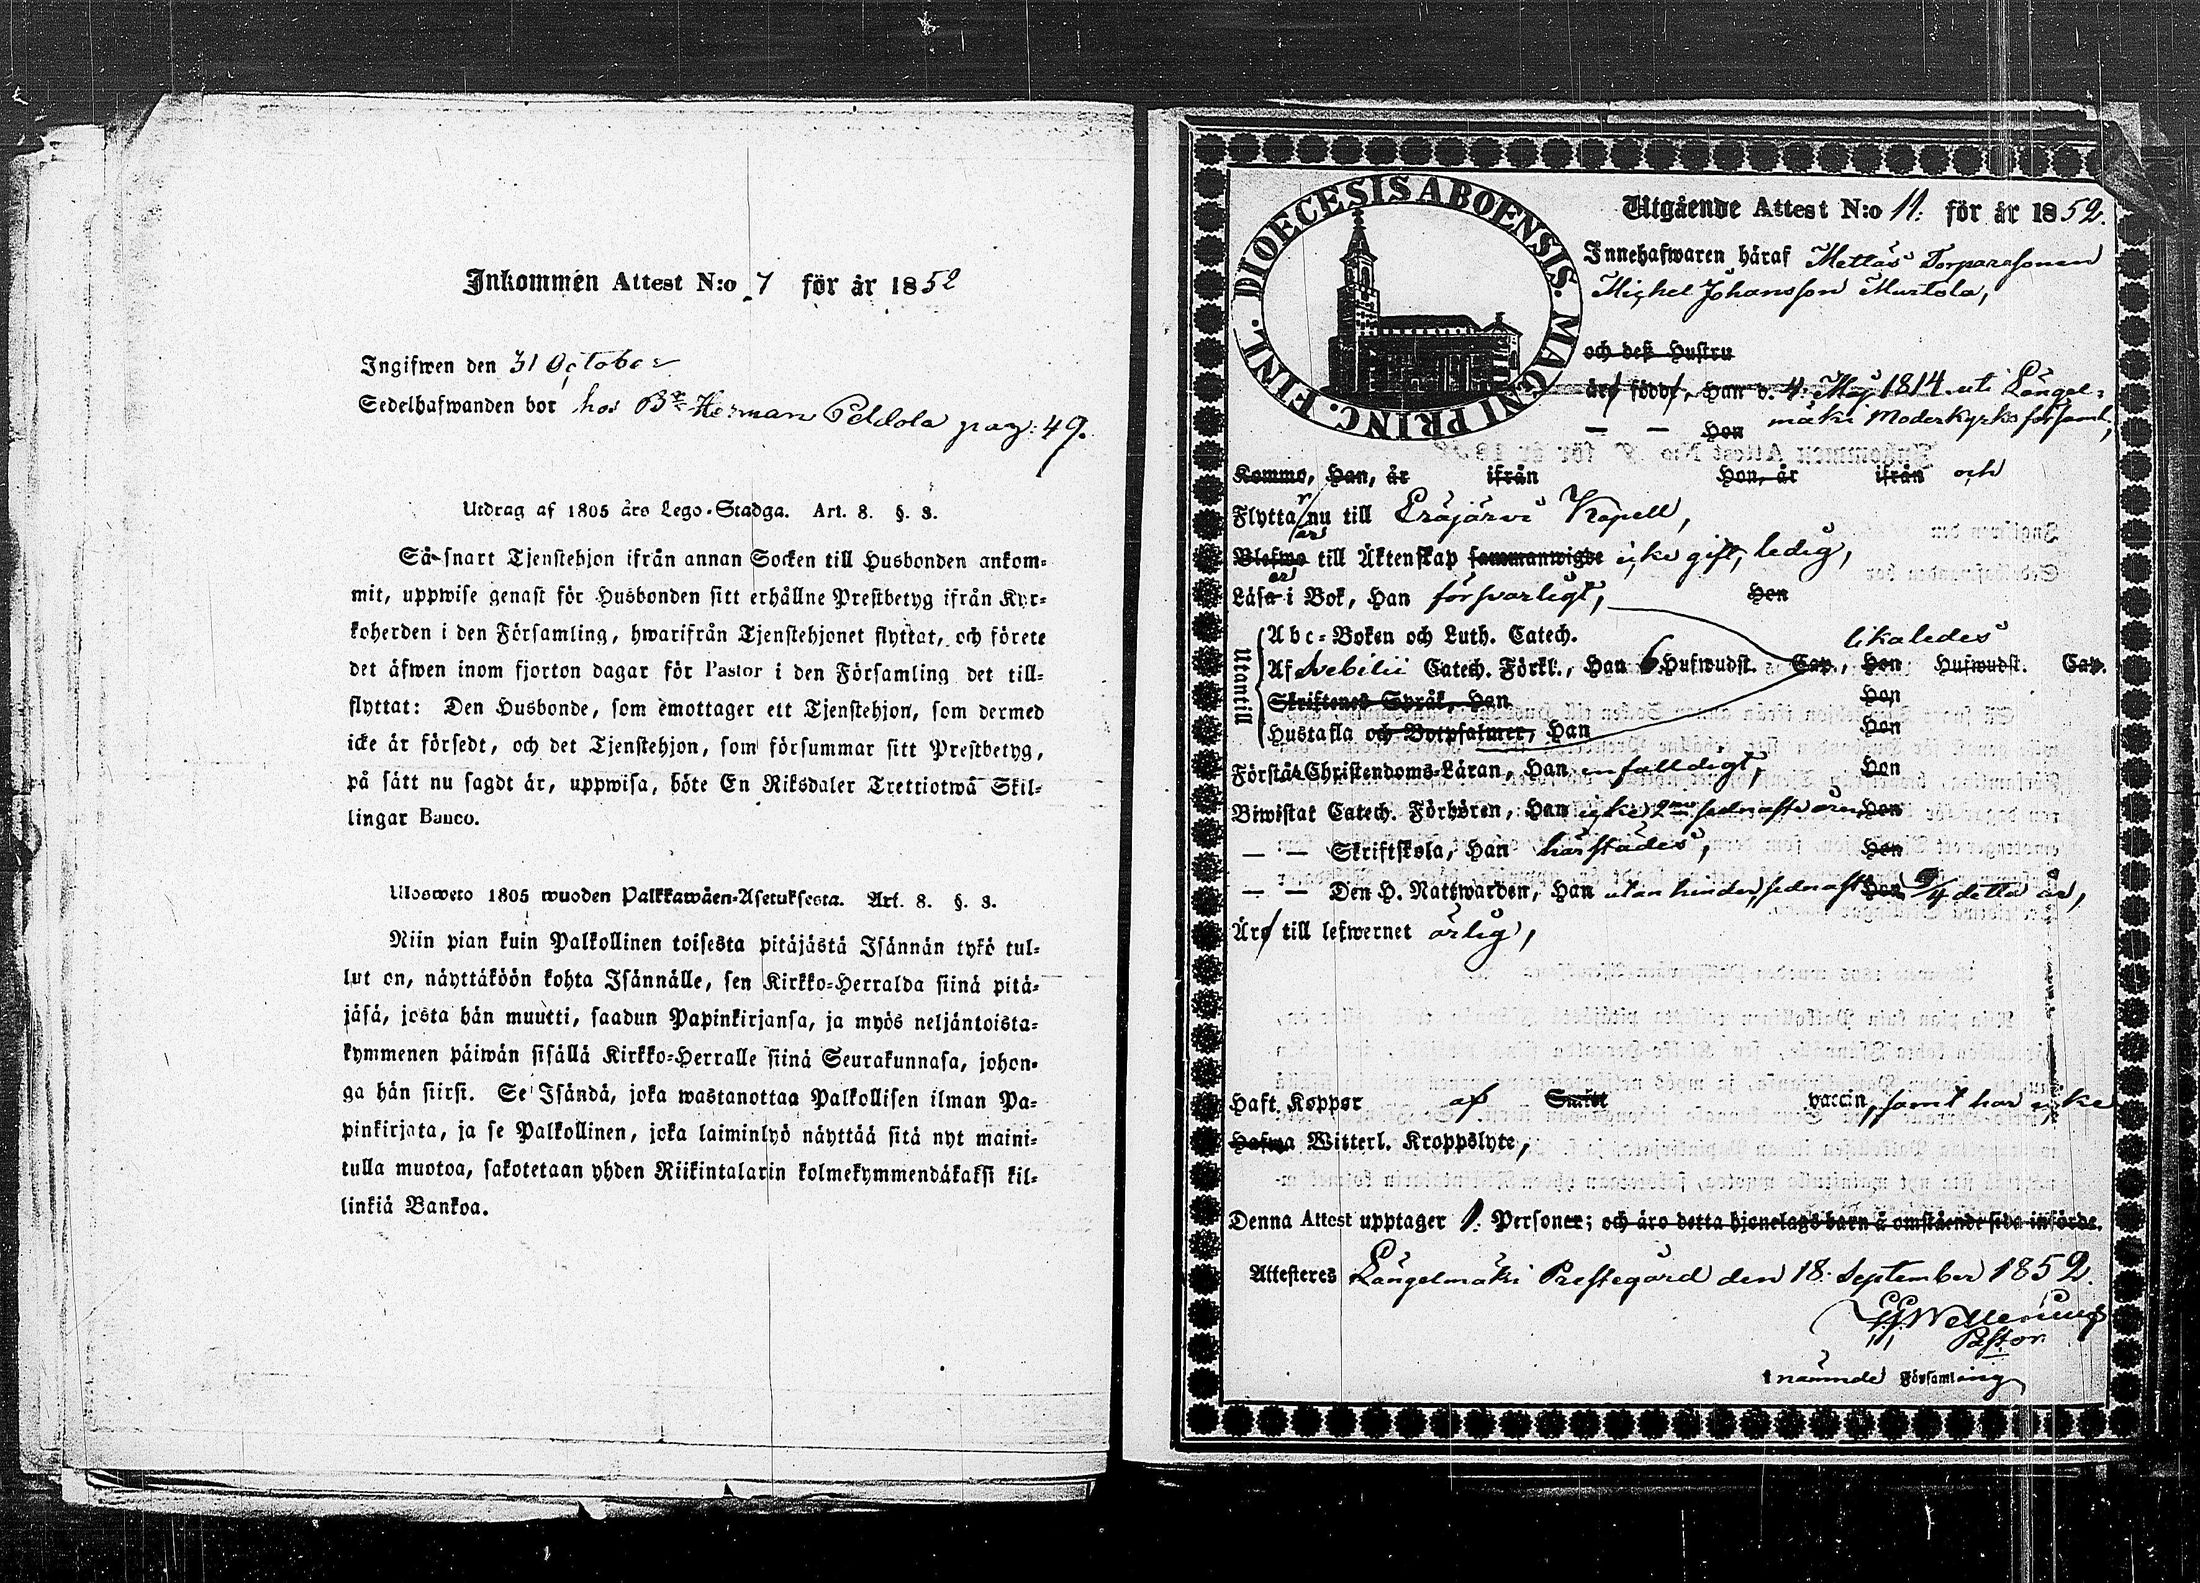 Inkommen Attest N:o 7 för år 1852
Ingifwen den 31 October
Sedelhafwanden bor hos Br Herman Peldola pag: 49.
Utdrag af 1805 års Lego-Stadga. Art. 8. §. 8.
Så snart Tjenstehjon ifrån annan Socken till Husbonden ankom-
mit, uppwise genast för Husbonden sitt erhållne Prestbetyg ifrån Kyr-
koherden i den Församling, hwarifrån Tjenstehjonet flyttat, och förete
det äfwen inom fjorton dagar för Pastor i den Församling det till-
flyttat: Den Husbonde, som emottager ett Tjenstehjon, som dermed
icke är försedt, och det Tjenstehjon, som försummar sitt Prestbetyg,
på sätt nu sagdt är, uppwisa, böte En Riksdaler Trettiotwå Skil-
lingar Banco.
Ulosweto 1805 wuoden Palkkawäen-Asetuksesta. Art. 8. §. 8.
Niin pian kuin Palkollinen toisesta pitäjästä Isännän tykö tul-
lut on, näyttäköön kohta Isännälle, sen Kirkko-Herralda siinä pitä-
jäsä, josta hän muutti, saadun Papinkirjansa, ja myös neljäntoista-
kymmenen päiwän sisällä Kirkko-Herralle siinä Seurakunnasa, johon-
ga hän siirsi. Se Isändä, joka wastanottaa Palkollisen ilman Pa-
pinkirjata, ja se Palkollinen, joka laiminlyö näyttää sitä nyt maini-
tulla muotoa, sakotetaan yhden Riikintalarin kolmekymmendäkaksi kil-
linkiä Bankoa.
DIOECESIS ABOENSIS. MAGNI PRINC. FINL.
Utgående Attest N:o 11. för år 1852.
Innehafwaren häraf Mattas Torparesonen
Michel Johansson Murtola,
och deß Hustru
äro född, Han d. 4. Maj 1814 uti Längel-
mäki Moderkyrko församl.,
— — Hon
Kommo, Han, år ifrån Hon, år ifrån och
Flyttar nu till Eräjärvi Kapell,
Blefwo till Äktenskap sammanwigde icke gift, ledig,
Läsa i Bok, Han försvarligt, Hon
Utantill
Abc-Boken och Luth. Catech. likaledes
Af Svebilii Catech. Förkl., Han 6 Hufwudst. Cap., Hon Hufwudst. Cap.
Skriftenes Språk, Han Hon
Hustafla och Botpsalmer, Han Hon
Förstår Christendoms-Läran, Han enfalldigt, Hon
Biwistat Catech. Förhören, Han icke 2ne sednaste åren, Hon
— — Skriftskola, Han härstädes, Hon
— — Den H. Nattwarden, Han utan hinder, sednast Hon 9/4 detta år,
Äro till lefwernet ärlig,
Haft Koppor af Smitt vaccin, samt har icke
Hafwa Witterl. Kroppslyte,
Denna Attest upptager 1. Personer; och äro detta hjonelags barn å omstående sida införde.
Attesteres Längelmäki Prestegård den 18. September 1852.
Pastor
i nämnde Församling